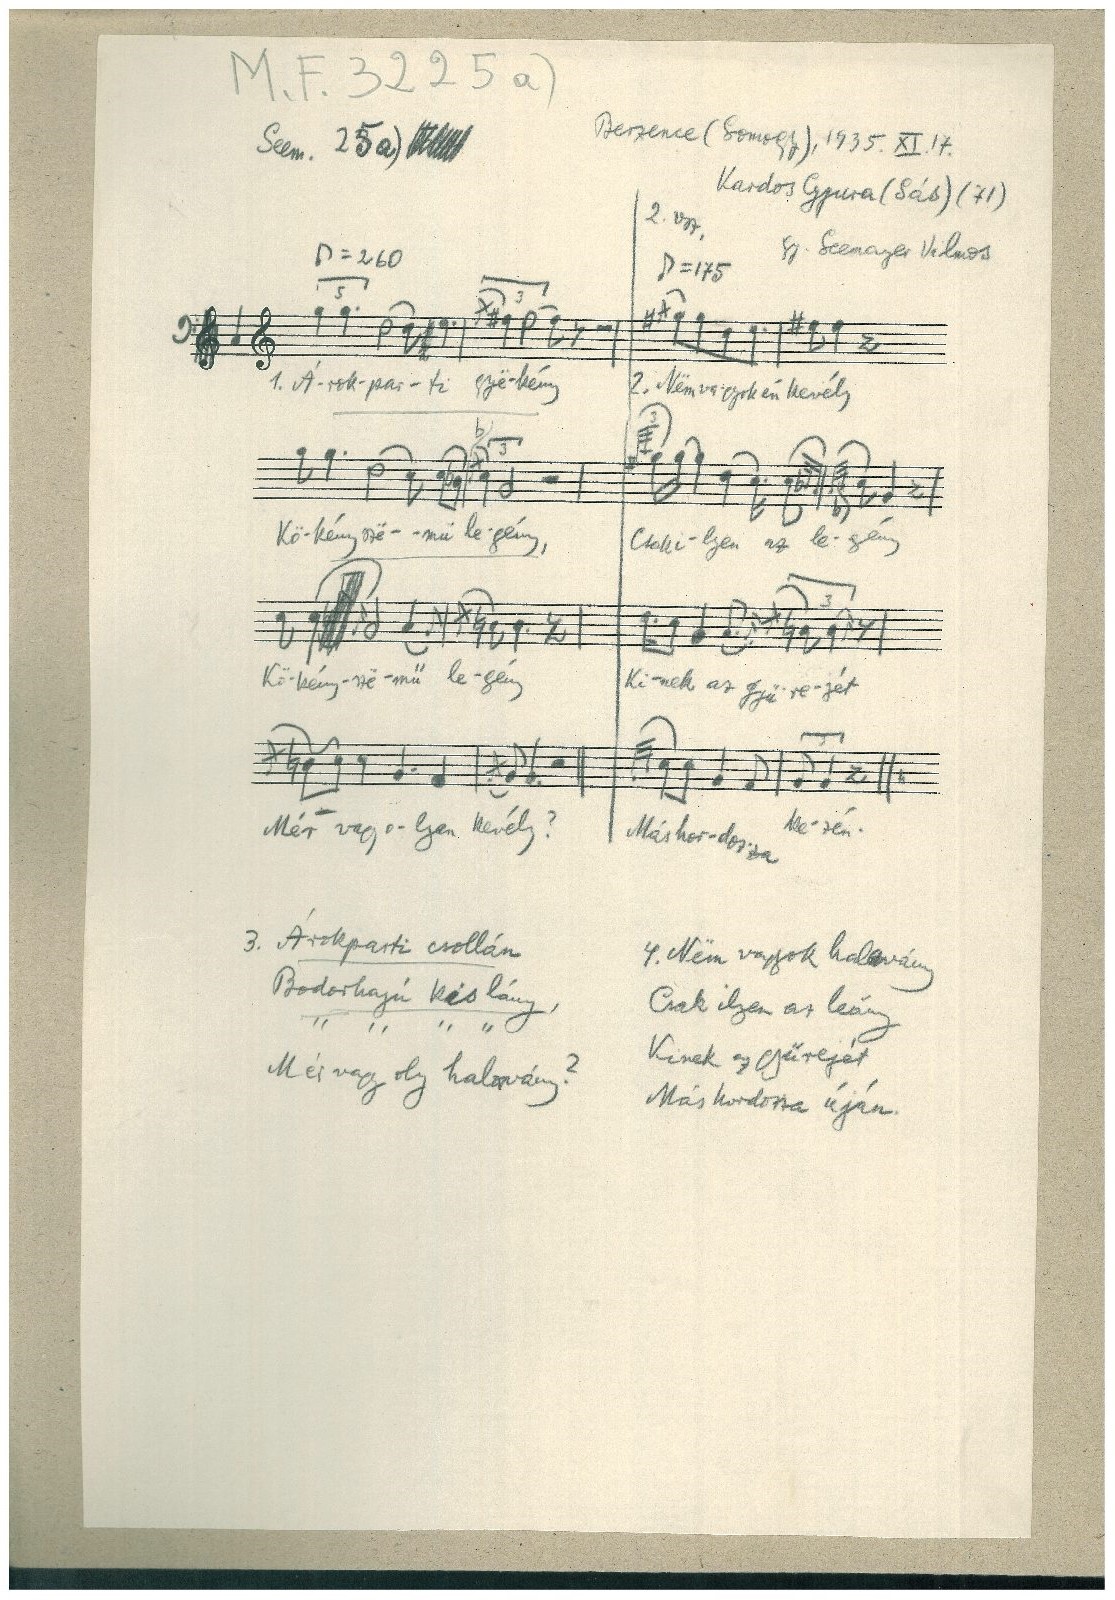 M.F. 3225a)
Seem. 25a)
Berzence (Somogy), 1935. XI. 17.
Kardos Gyura (Sás) (71)
Gy. Seemayer Vilmos
♪=260
2. vsz.
♪=175
5
3
1. Á-rok-par-ti gyë-kény
2. Nëm va-gyok én kevély
3
b
3
Kö-kény szë--mü le-gény,
Csak i-lyen az le-gény
Kö-kény-szë-mü le-gény
3
Ki-nek az gyü-re-jét
Mér vagy o-lyan kevély?
3
Más hor-doz-za ke-zén.
3. Árokparti csollán
Bodorhajú kis lány,
" " " "
Mér vagy oly halavány?
4. Nëm vagyok halavány
Csak ilyen az leány
Kinek az gyűrejét
Más hordozza úján.